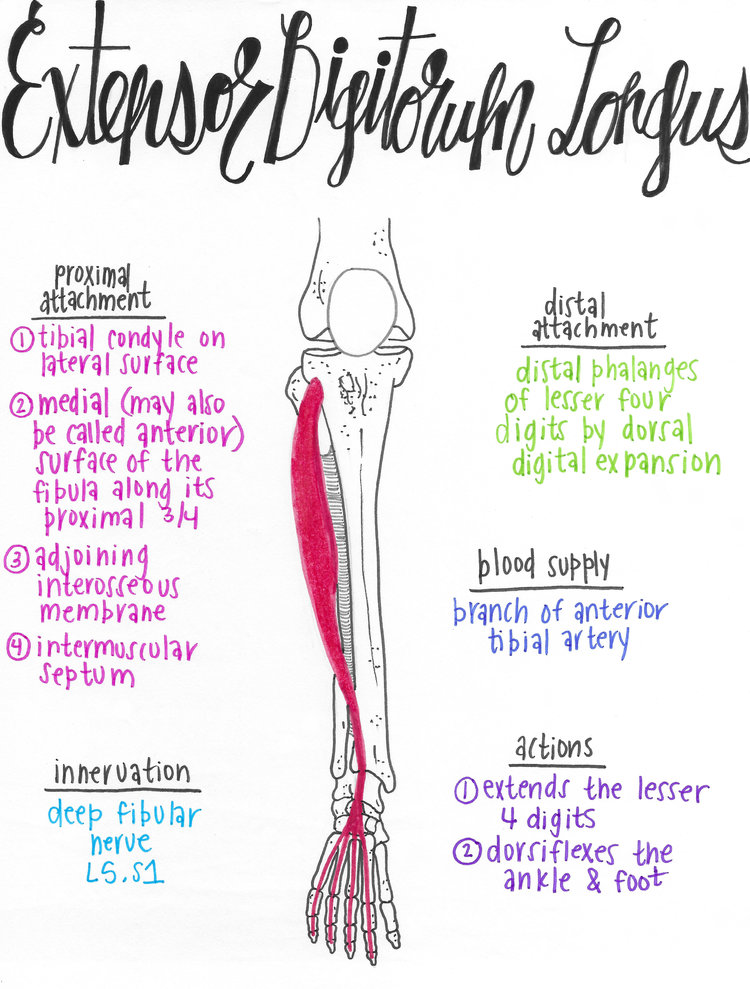 Extensor Digitorum Longus
proximal
attachment
① tibial condyle on
lateral surface
② medial (may also
be called anterior)
surface of the
fibula along its
proximal 3/4
③ adjoining
interosseous
membrane
④ intermuscular
septum
innervation
deep fibular
nerve
L5, S1
distal
attachment
distal phalanges
of lesser four
digits by dorsal
digital expansion
blood supply
branch of anterior
tibial artery
actions
① extends the lesser
4 digits
② dorsiflexes the
ankle & foot